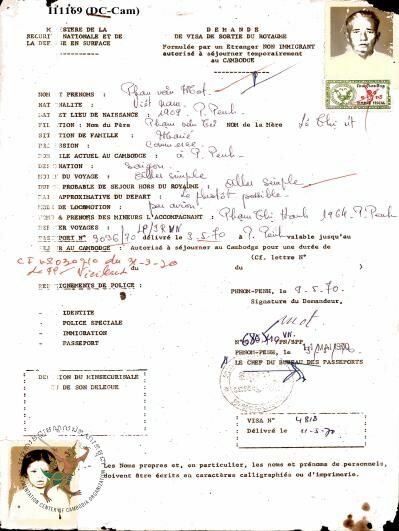 111169 (DC-Cam)
MINISTERE DE LA
SECURITE NATIONALE ET DE
LA DEFENSE EN SURFACE
DEMANDE
DE VISA DE SORTIE DU ROYAUME
Formulée par un Etranger NON IMMIGRANT
autorisé à séjourner temporairement
au CAMBODGE
NOM ET PRENOMS : Pham văn Mot
NATIONALITE : Việt nam
DATE ET LIEU DE NAISSANCE : 1909. P. Penh
FILIATION : Nom du Père Pham văn NOM de la Mère Thị
SITUATION DE FAMILLE : Marié
PROFESSION : Commerce
DOMICILE ACTUEL AU CAMBODGE : à P. Penh
DESTINATION : Saigon
DU VOYAGE : Aller simple
DUREE PROBABLE DE SEJOUR HORS DU ROYAUME : Aller simple
DATE APPROXIMATIVE DU DEPART : Le plustôt possible
MODE DE LOCOMOTION : par avion
NOMS & PRENOMS DES MINEURS L'ACCOMPAGNANT : Pham Thị Hanh 1964. P. Penh
DERNIER VOYAGES :
PASSEPORT N° 9036/70 délivré le 3.5.70 P. Penh valable jusqu'au
SEJOUR AU CAMBODGE : Autorisé à séjourner au Cambodge pour une durée de
(Cf. lettre N°
du 31-3-70
du )
RENSEIGNEMENTS DE POLICE :
PHNOM-PENH, le 9.5.70.
Signature du Demandeur,
mot
- IDENTITE
- POLICE SPECIALE
- IMMIGRATION
- PASSEPORT
VN.
PN/SPP
MAI 1970
PHNOM-PENH, le
LE CHEF DU BUREAU DES PASSEPORTS
DECISION DU MINSECURINALE
OU DE SON DELEGUE
VISA N° 4813
Délivré le 11-5-70
Les Noms propres et, en particulier, les noms et prénoms de personnels,
doivent être écrits en caractères calligraphiés ou d'imprimerie.
DOCUMENTATION CENTER OF CAMBODIA ORGANIZATION